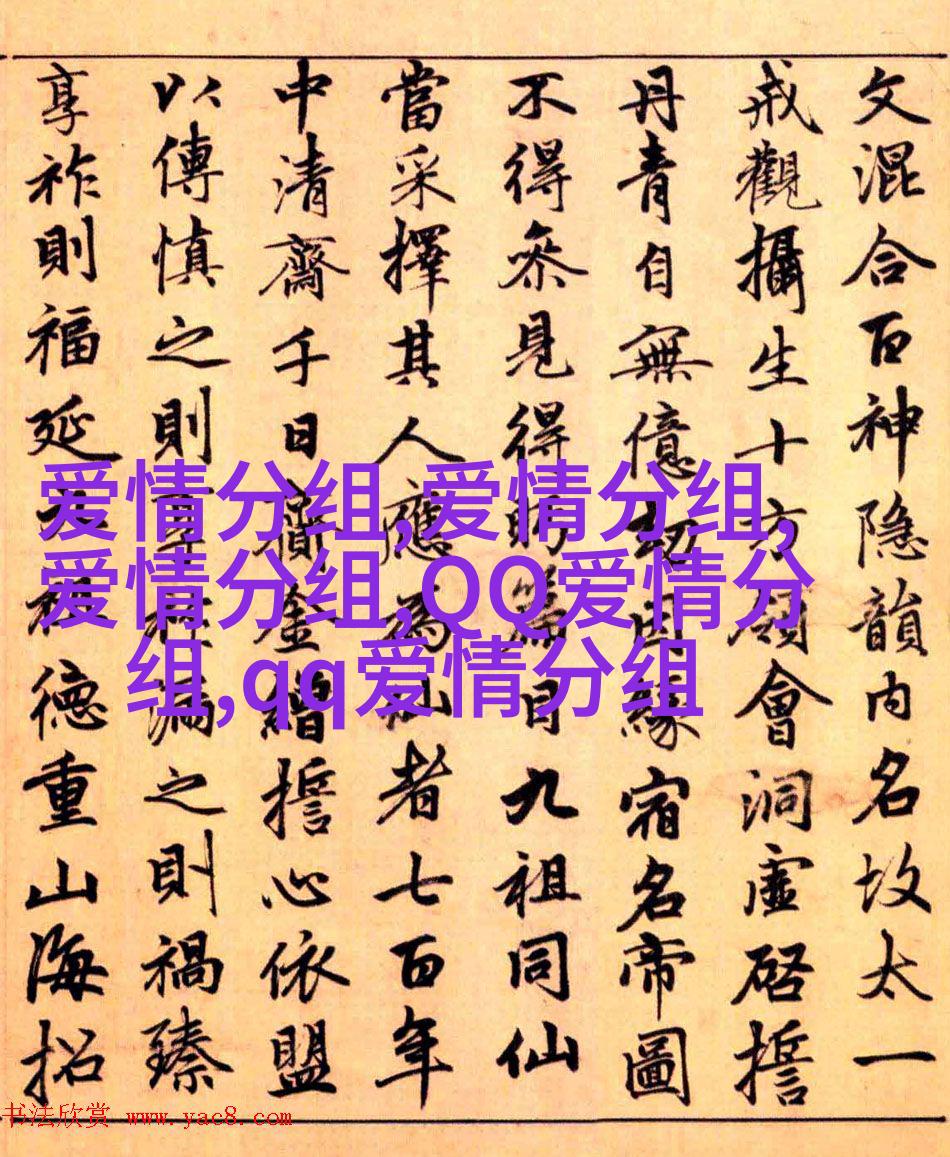 文混合百神隐韻内名故太一
戒觀攝生十方領會洞虚啓誓
丹青自無億劫因緣宿名帝圖
不得叅見得篇目九祖同仙
當采擇其人應爲仙者七百年
中清齋千日齎金繒誓心依盟
以傳慎之則漏之則禍臻
享祚則福延德重山海招
爱情分组,爱情分组,
爱情分组,QQ爱情分
组,qq爱情分组
书法欣赏 www.yac8.com